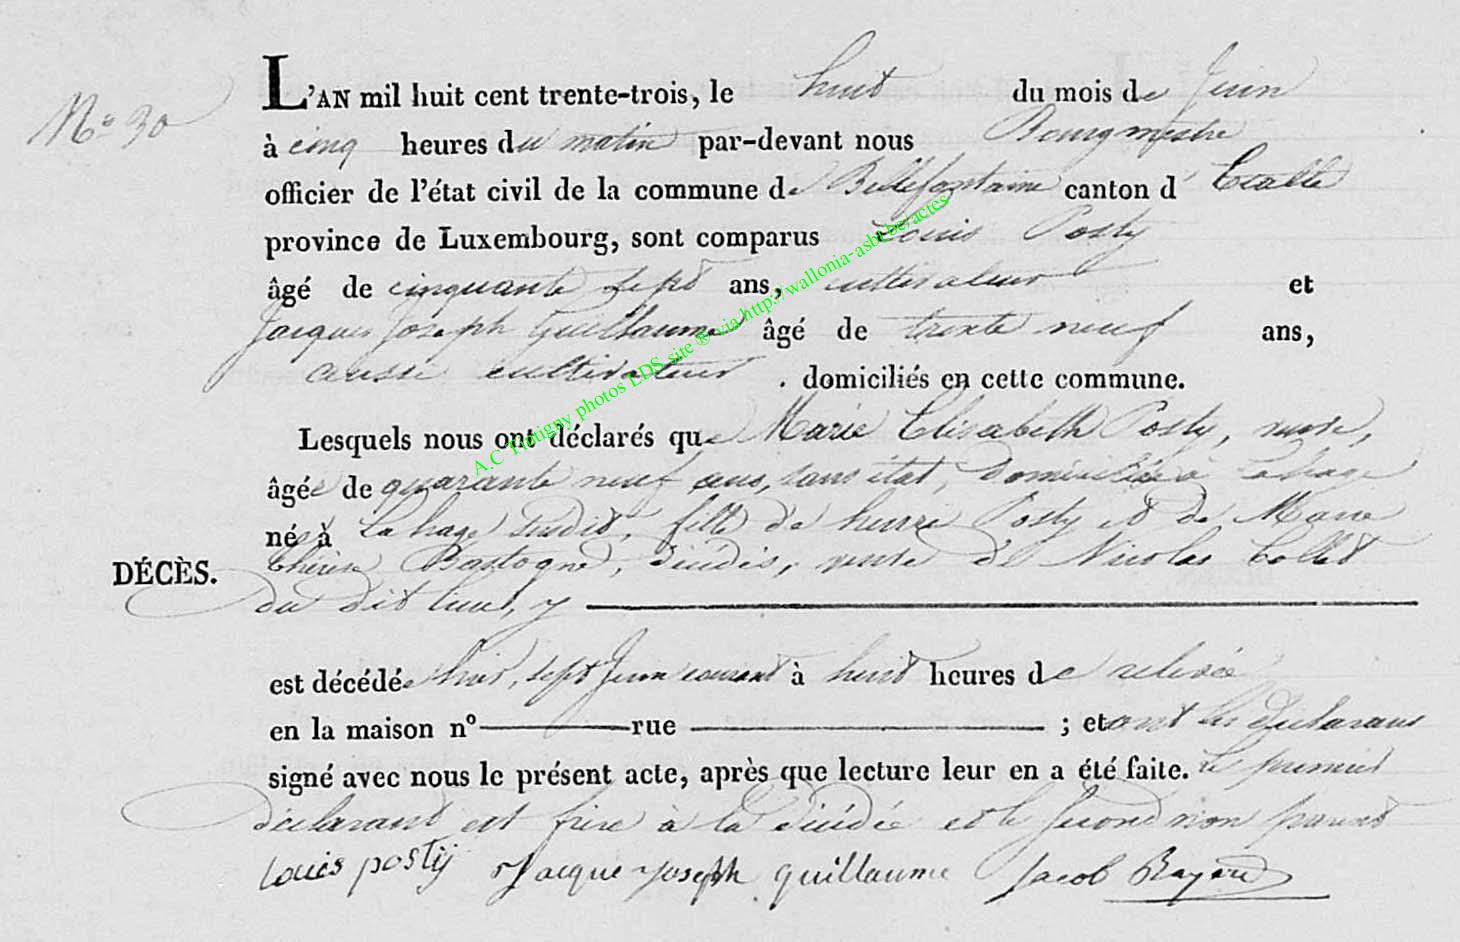 N° 30
L'AN mil huit cent trente-trois, le huit du mois de Juin
à cinq heures du matin par-devant nous Bourgmestre
officier de l'état civil de la commune de Bellefontaine canton d' Etalle
province de Luxembourg, sont comparus Louis Posty
âgé de cinquante sept ans, cultivateur et
Jacques Joseph Guillaume âgé de trente neuf ans,
aussi cultivateur . domiciliés en cette commune.
Lesquels nous ont déclarés que Marie Elisabeth Posty, veuve,
âgée de quarante neuf ans, sans état, domiciliée à Lahage
née à Lahage susdit, fille de henri Posty et de Marie
Thérèse Bastogne, décédés, veuve de Nicolas Collet
DÉCÈS.
du dit lieu, y
est décédée hier, sept Juin courant à huit heures de relevée
en la maison n° rue ; et ont les déclarans
signé avec nous le présent acte, après que lecture leur en a été faite. Le premier
déclarant est frère à la décédée et le second non parent
Louis posty Jacque joseph guillaume Jacob
A.C Tintigny photos LDS, site ® via http://wallonia-asbl-be/actes